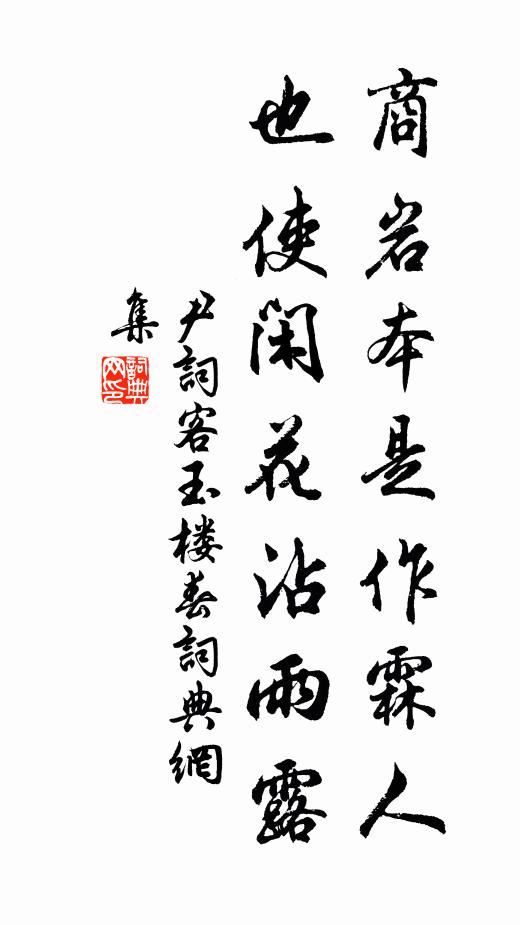 商岩本是作霖人
也使闲花沾雨露
尹詞客玉楼春詞典網
集
詞典
网印